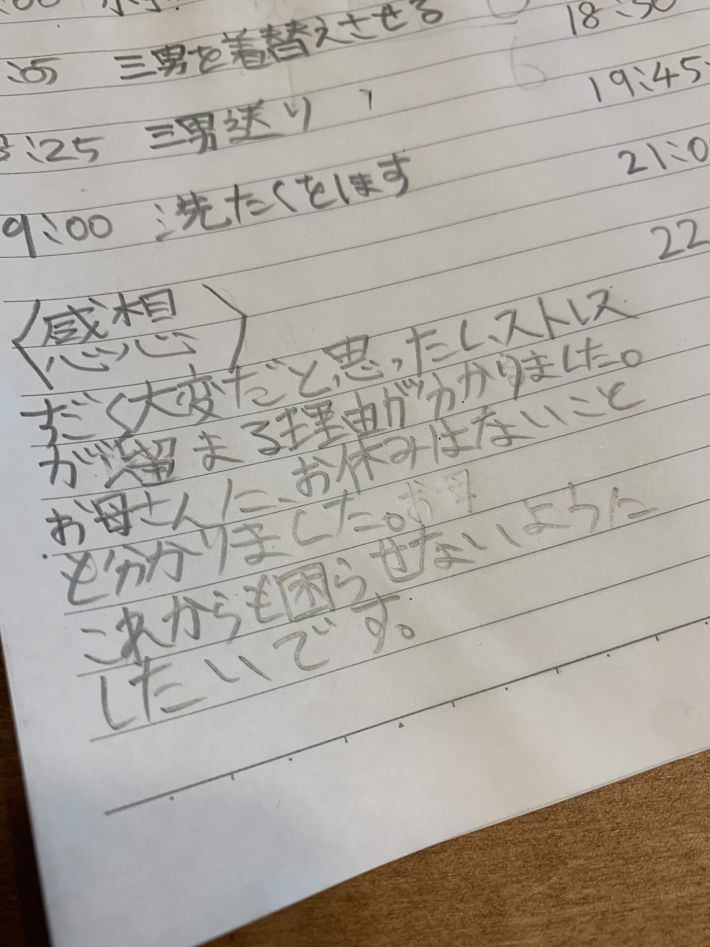 :05 三男を着替えさせる
18:30
8:25 三男送り
19:45
9:00 洗たくをします
21:0
22
〈感想〉
すごく大変だと思ったし、ストレス
が溜まる理由が分かりました。
お母さんに、お休みはないこと
も分かりました。
これからも困らせないように
したいです。